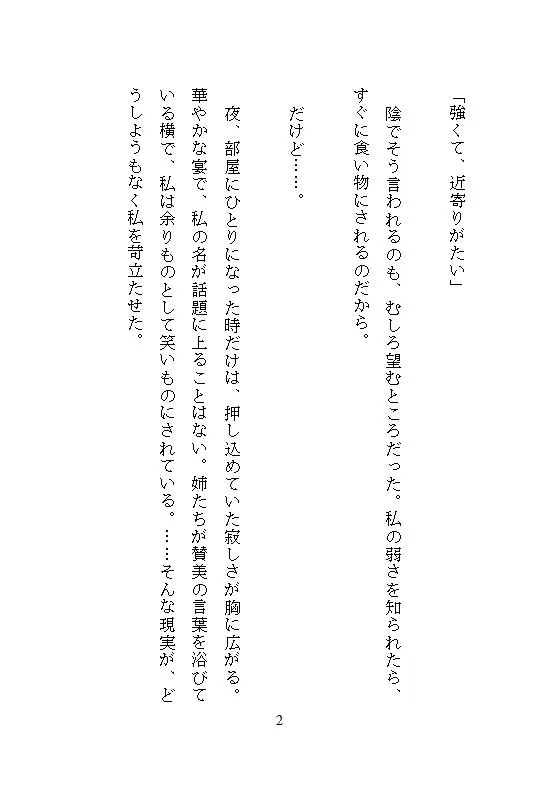 「強くて、近寄りがたい」
陰でそう言われるのも、むしろ望むところだった。私の弱さを知られたら、
すぐに食い物にされるのだから。
だけど……。
夜、部屋にひとりになった時だけは、押し込めていた寂しさが胸に広がる。
華やかな宴で、私の名が話題に上ることはない。姉たちが賛美の言葉を浴びて
いる横で、私は余りものとして笑いものにされている。……そんな現実が、ど
うしようもなく私を苛立たせた。
2